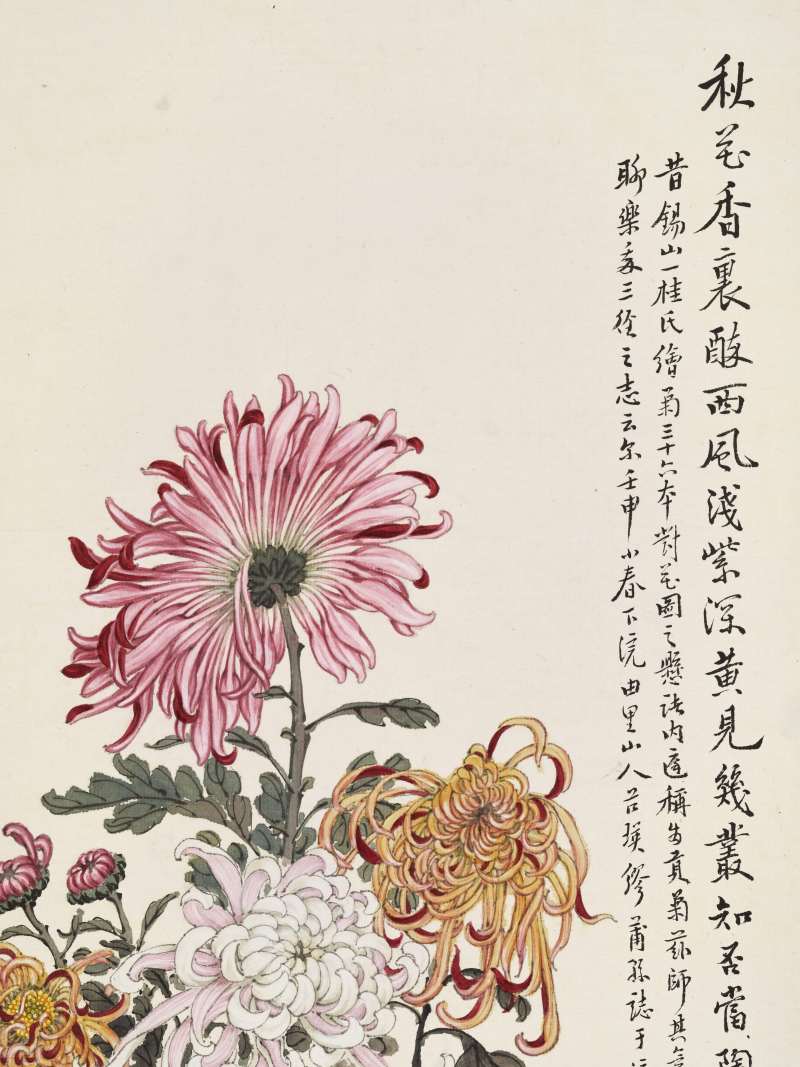 秋花香裏醉西風淺紫深黃見幾叢知否當陶
昔錫山一桂氏繪菊三十六本對花圖之懸諸內廷稱為真菊茲師其意
聊樂我三徑之志云尔壬申小春下浣由里山人呂瑛繆莆孫誌于